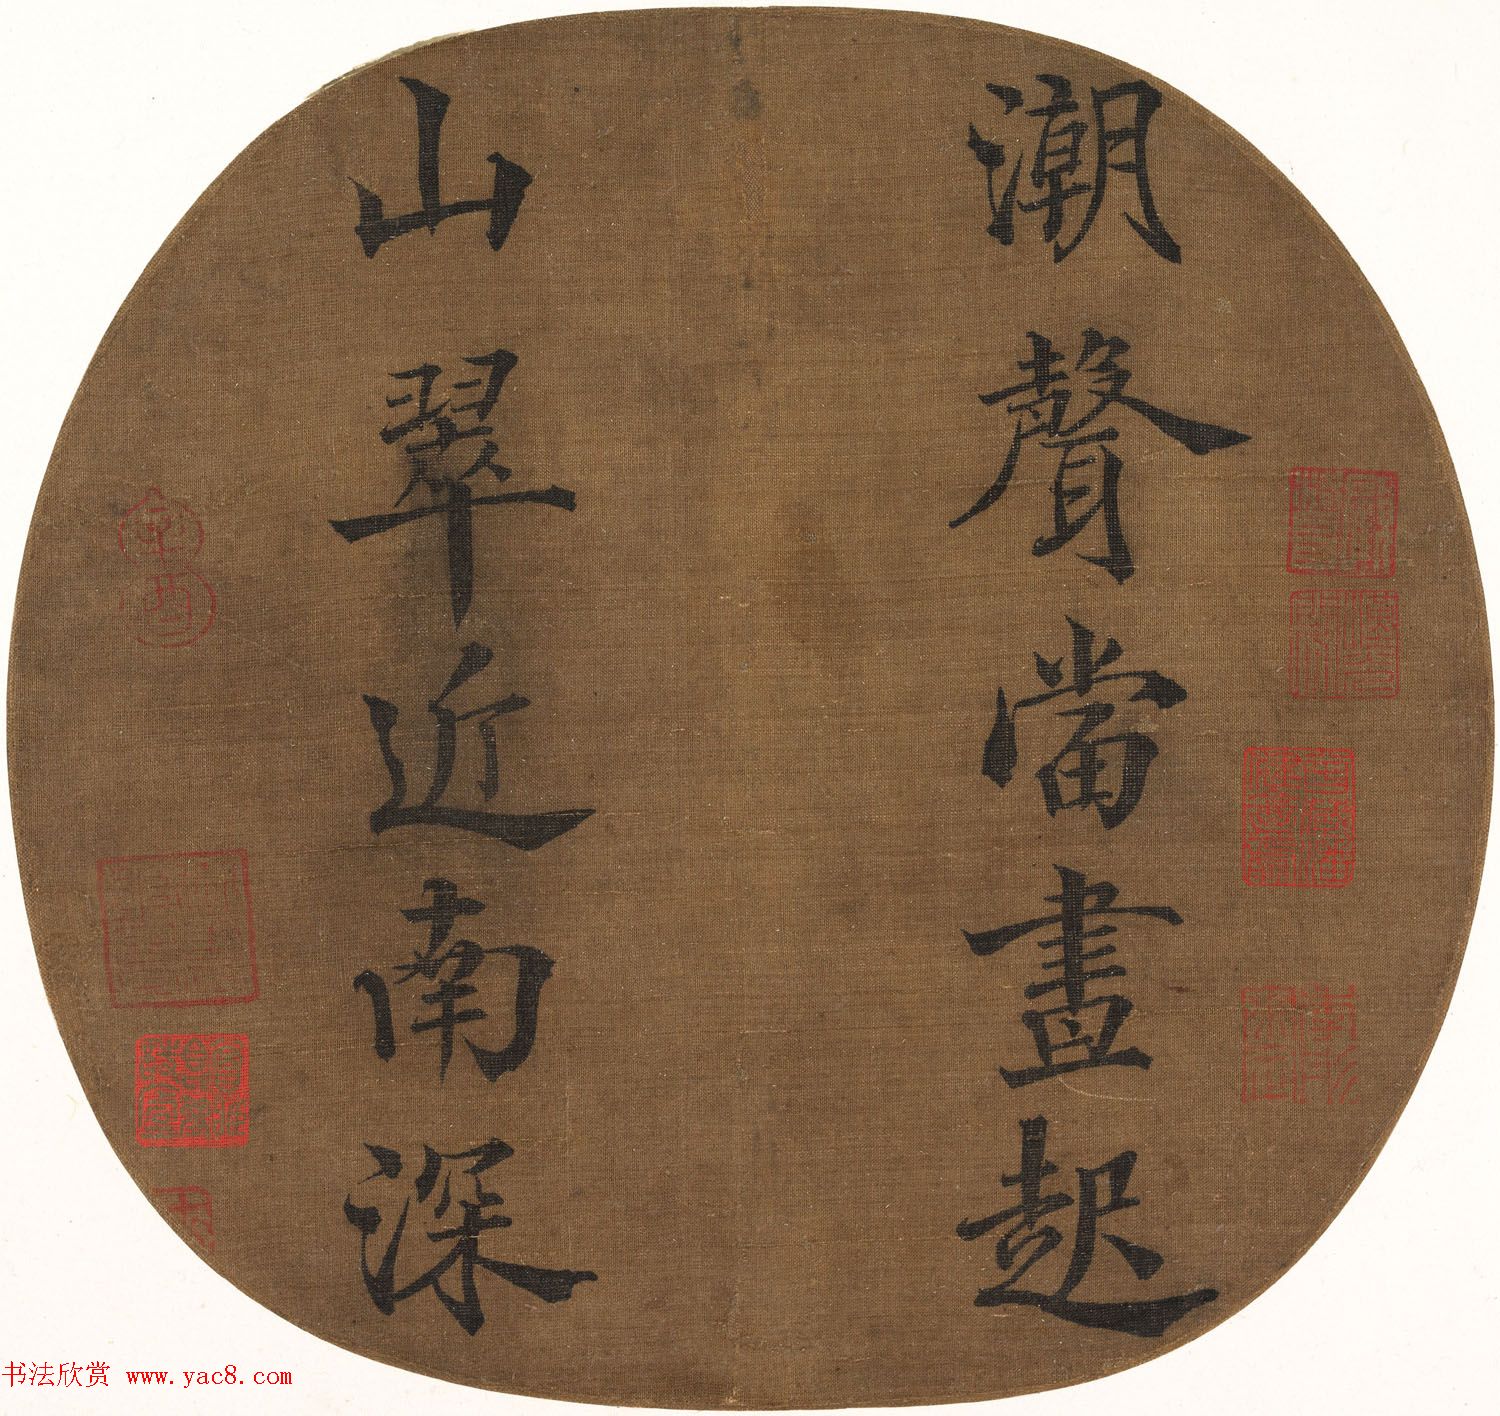 潮聲當晝起
山翠近南深
辛酉
书法欣赏 www.yac8.com